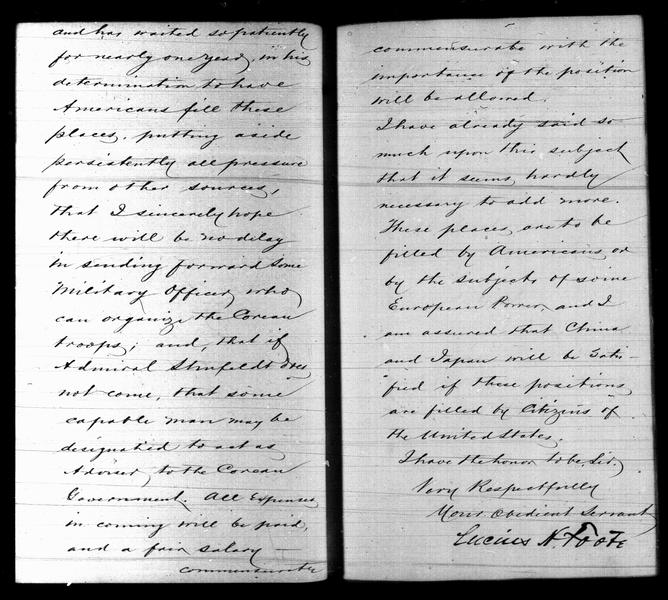 and has waited so patiently
for nearly one year, in his
determination to have
Americans fill these
places, putting aside
persistently all pressure
from other sources,
that I sincerely hope
there will be no delay
in sending forward some
Military Officer who
can organize the Corean
troops; and, that if
Admiral Shufeldt does
not come, that some
capable man may be
designated to act as
Adviser to the Corean
Government. All Expenses
in coming will be paid,
and a fair salary —
commensurate
commensurate with the
importance of the position
will be allowed.
I have already said so
much upon this subject
that it seems hardly
necessary to add more.
These places are to be
filled by Americans or
by the subjects of some
European Power, and I
am assured that China
and Japan will be Satis-
fied if these positions
are filled by Citizens of
the United States.
I have the honor to be, Sir,
Very Respectfully
Your obedient Servant
Lucius H. Foote